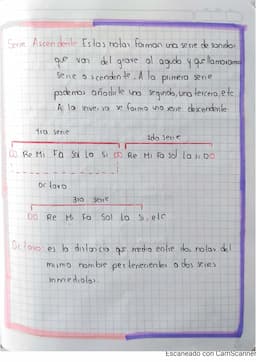 Serie Ascendente Estas notas forman una serie de sonidos
que van del grave al agudo y que llamamos
serie ascendente. A la primera serie
podemos añadirle una segunda, una tercera, etc
A la inversa se forma una serie descendente
1ra serie
2da serie
DO Re Mi Fa Sol La Si DO Re Mi Fa Sol la si DO
Octava
3ra serie
DO Re Mi Fa Sol La Si, etc
Octava es la distancia que media entre dos notas del
mismo nombre pertenecientes a dos series
inmediatas.
Escaneado con CamScanner